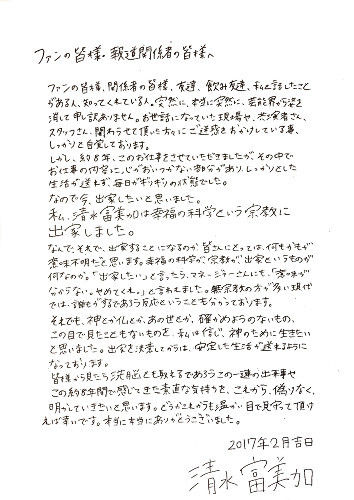 ファンの皆様・報道関係者の皆様へ
ファンの皆様、関係者の皆様、友達、飲み友達、私と話したこと
がある人、知ってくれている人。突然に、本当に突然に、芸能界から姿を
消して申し訳ありません。お世話になっていた現場や、共演者さん、
スタッフさん、関わらせて頂いた方々にご迷惑をおかけしている事、
しっかりと自覚しております。
しかし、約8年、このお仕事をさせていただきましたが、その中で
お仕事の内容に、心がおいつかない部分があり、しっかりとした
生活が送れず、毎日がギリギリの状態でした。
なので今、出家したいと思いました。
私、清水富美加は幸福の科学という宗教に
出家しました。
なんで、それで、出家することになるのか皆さんにとっては、何もかもが
意味不明だと思います。幸福の科学が、宗教が、出家というものが
何なのか。「出家したい」と言ったら、マネージャーさんにも、「意味が
分からない。やめてくれ。」と言われました。無宗教の方が多い現代
では、誰もがするであろう反応ということも分かっております。
それでも、神とか仏とか、あの世とか、確かめようのないもの、
この目で見たこともないものを、私は信じ、神のために生きたい
と思いました。出家を決意してからは、安定した生活が送れるように
なっております。
皆様から見たら洗脳とも取えるであろうこの一連の出来事や
この約8年間で感じてきた素直な気持ちを、これから、偽りなく、
明かしていきたいと思います。どうかこれからも温かい目で見守って頂け
れば幸いです。本当に本当にありがとうございました。
2017年2月吉日
清水富美加